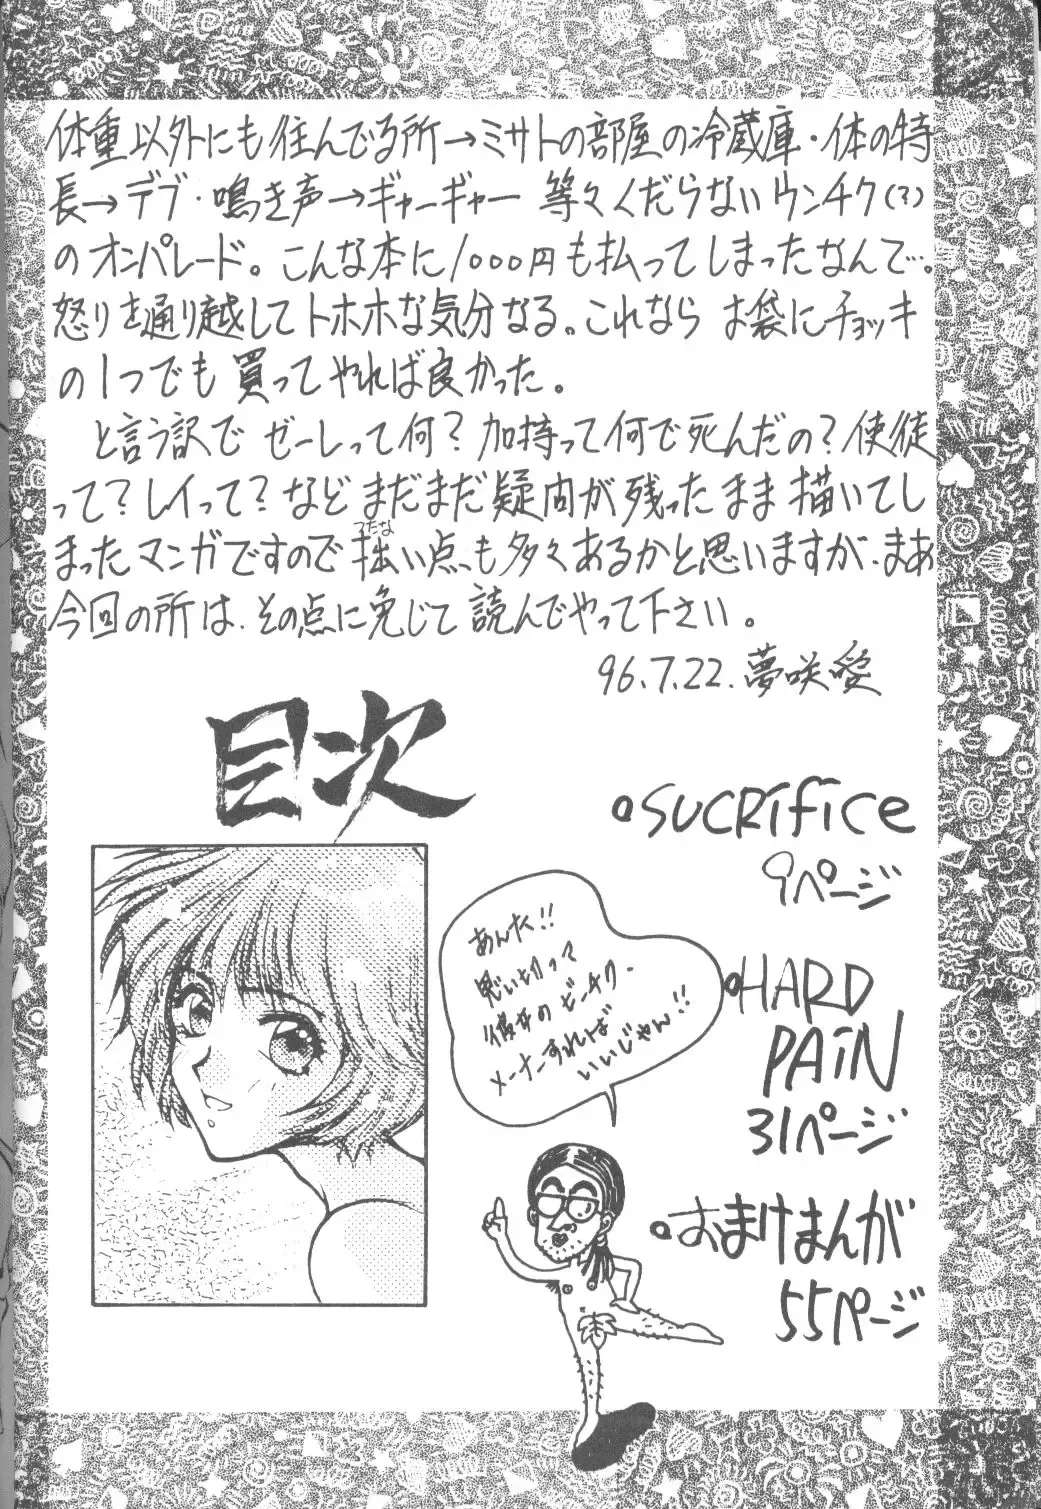 体重以外にも住んでる所→ミサトの部屋の冷蔵庫・体の特
長→デブ・鳴き声→ギャーギャー 等々くだらないウンチク(?)
のオンパレード。こんな本に1000円も払ってしまったなんて…。
怒りを通り越してトホホな気分なる。これなら お袋にチョッキ
の1つでも買ってやれば良かった。
と言う訳で ゼーレって何?加持って何で死んだの?使徒
って?レイって?などまだまだ疑問が残ったまま描いてし
まったマンガですので拙い点も多々あるかと思いますが、まあ
つたな
今回の所は、その点に免じて読んでやって下さい。
96.7.22.夢咲愛
目次
SUCRifice
9ページ
HARD
PAiN
31ページ
おまけまんが
55ページ
あんた!!
思い切って
彼女のビーチク
メーナーすれば
いいじゃん!!